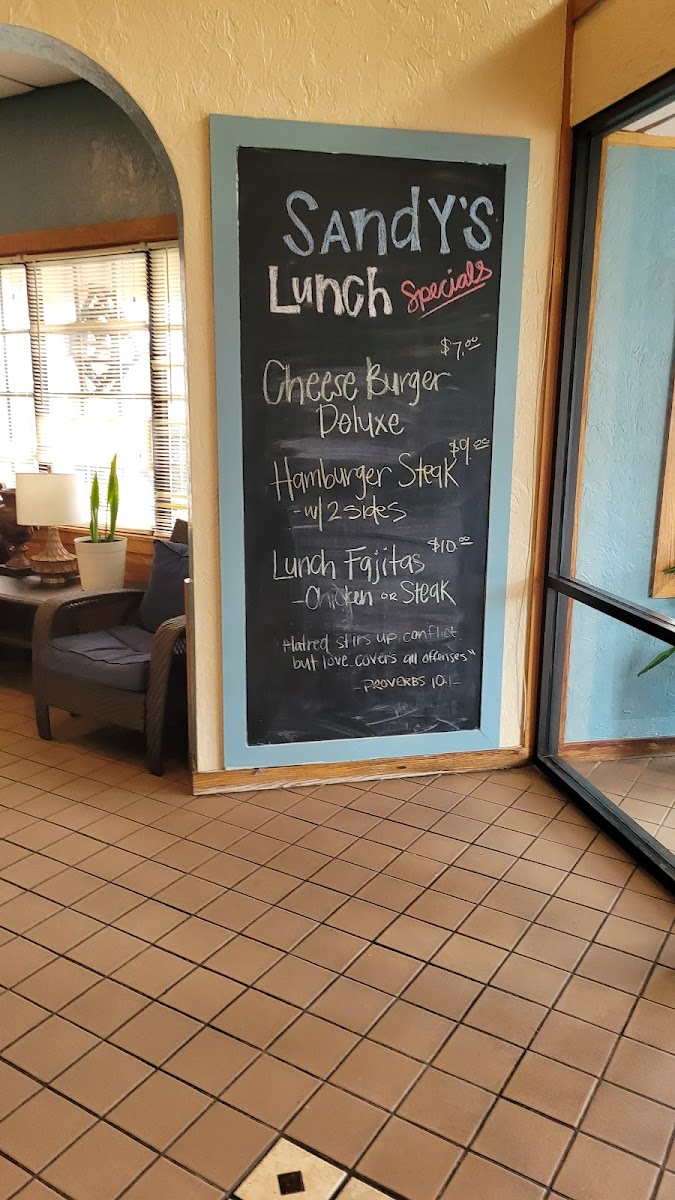 SANdY'S
LUNCH Specials
$7.00
Cheese Burger
Doluxe
$9.00
Hamburger Steak
- w/ 2 sides
$10.00
Lunch Fajitas
- Chicken or Steak
Hatred stirs up conflict
but love covers all offenses"
- PROVERBS 10:1-